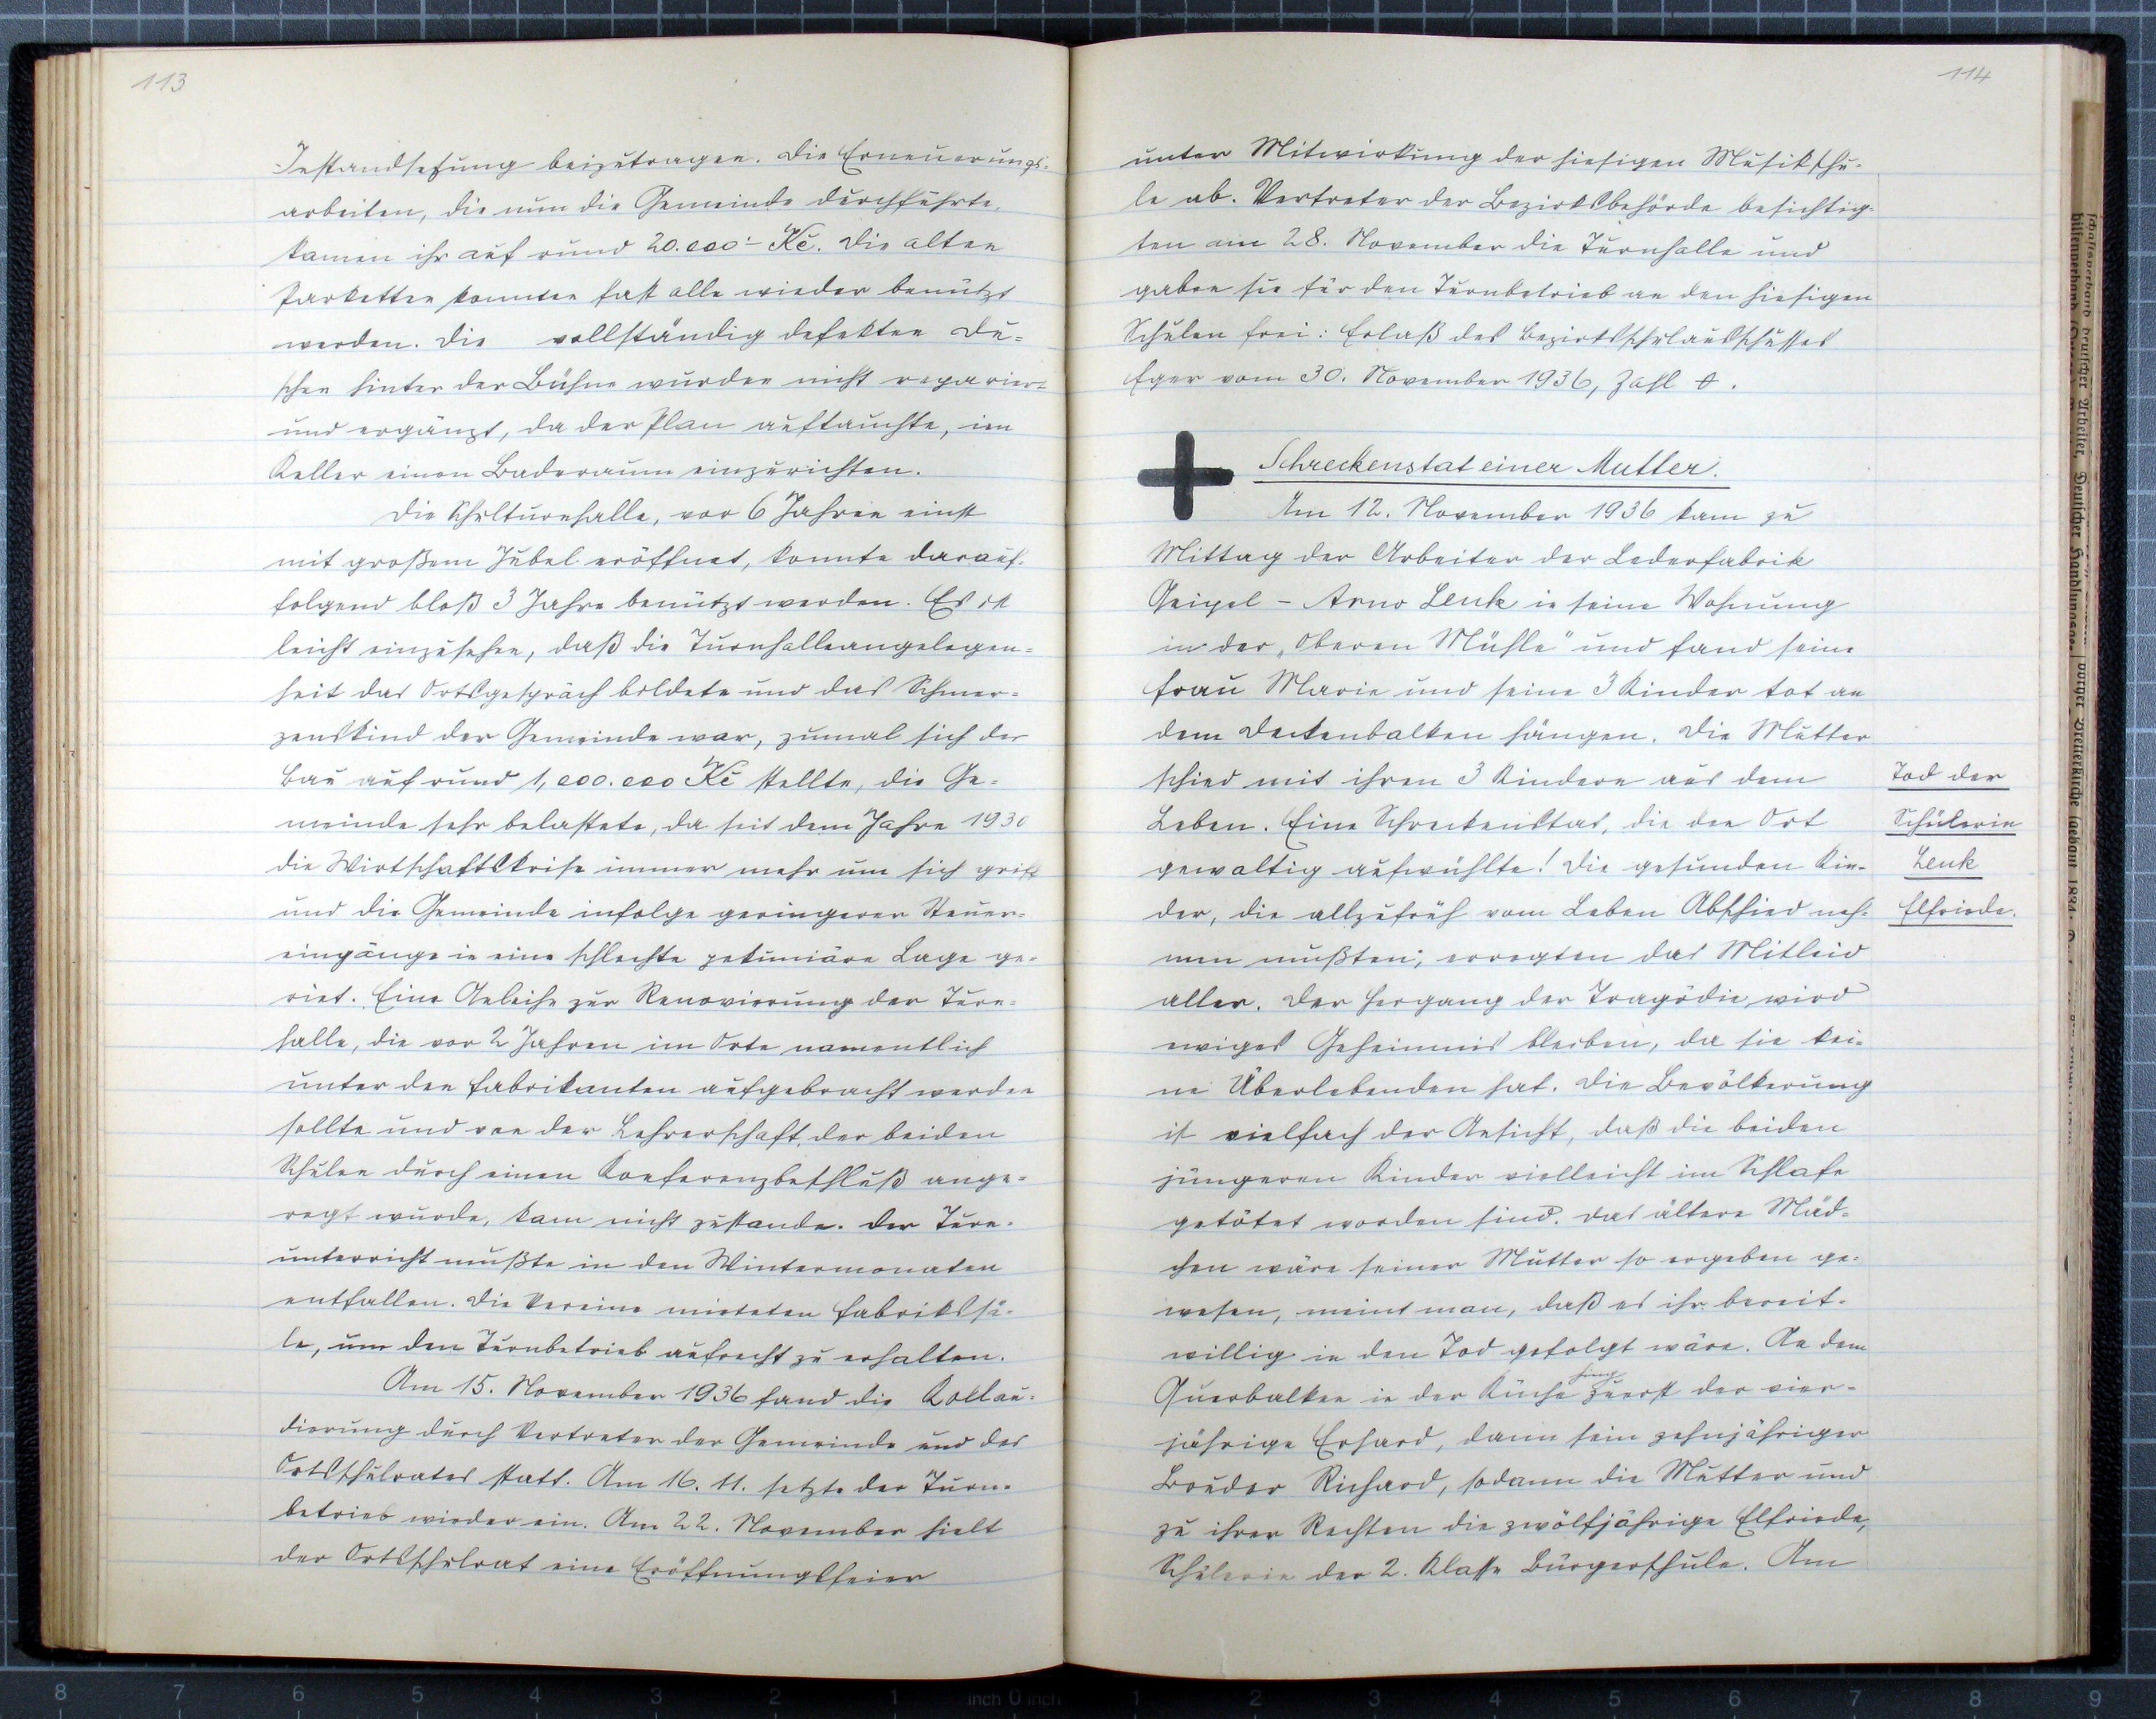 113
Instandsetzung beizutragen. Die Erneuerungs-
arbeiten, die nun die Gemeinde durchführte,
kamen ihr auf rund 20.000·- Kč. Die alten
Parketten konnten fast alle wieder benützt
werden. Die vollständig defekten Du-
schen hinter der Bühne wurden nicht repariert
und ergänzt, da der Plan auftauchte, im
Keller einen Baderaum einzurichten.
Die Schulturnhalle, vor 6 Jahren einst
mit großem Jubel eröffnet, konnte darauf-
folgend bloß 3 Jahre benützt werden. Es ist
leicht einzusehen, daß die Turnhalleangelegen-
heit das Ortsgespräch bildete und das Schmer-
zenskind der Gemeinde war, zumal sich der
Bau auf rund 1,000.000 Kč stellte, die Ge-
meinde sehr belastete, da seit dem Jahre 1930
die Wirtschaftskrise immer mehr um sich griff
und die Gemeinde infolge geringerer Steuer-
eingänge in eine schlechte pekuniäre Lage ge-
riet. Eine Anleihe zur Renovierung der Turn-
halle, die vor 2 Jahren im Orte namentlich
unter den Fabrikanten aufgebracht werden
sollte und von der Lehrerschaft der beiden
Schulen durch einen Konferenzbeschluß ange-
regt wurde, kam nicht zustande. Der Turn-
unterricht mußte in den Wintermonaten
entfallen. Die Vereine mieteten Fabrikssä-
le, um den Turnbetrieb aufrecht zu erhalten.
Am 15. November 1936 fand die Kollau-
dierung durch Vertreter der Gemeinde und des
Ortsschulrates statt. Am 16. 11. setzte der Turn-
betrieb wieder ein. Am 22. November hielt
der Ortsschulrat eine Eröffnungsfeier
114
unter Mitwirkung der hiesigen Musikschu-
le ab. Vertreter der Bezirksbehörde besichtig-
ten am 28. November die Turnhalle und
gaben sie für den Turnbetrieb an den hiesigen
Schulen frei: Erlaß des Bezirksschulausschusses
Eger vom 30. November 1936, Zahl
Schreckenstat einer Mutter.
Am 12. November 1936 kam zu
Mittag der Arbeiter der Lederfabrik
Geipel - Arno Lenk in seine Wohnung
in der „Oberen Mühle" und fand seine
Frau Marie und seine 3 Kinder tot an
dem Deckenbalken hängen. Die Mutter
schied mit ihren 3 Kindern aus dem
Leben. Eine Schreckenstat, die den Ort
gewaltig aufwühlte! Die gesunden Kin-
der, die allzufrüh vom Leben Abschied neh-
men mußten, erregten das Mitleid
aller. Der Hergang der Tragödie wird
ewiges Geheimnis bleiben, da sie kei-
ne Überlebenden hat. Die Bevölkerung
ist vielfach der Ansicht, daß die beiden
jüngeren Kinder vielleicht im Schlafe
getötet worden sind. Das ältere Mäd-
chen wäre seiner Mutter so ergeben ge-
wesen, meint man, daß es ihr bereit-
willig in den Tod gefolgt wäre. An dem
Querbalken in der Küche hing zuerst der vier-
jährige Erhard, dann sein zehnjähriger
Bruder Richard, sodann die Mutter und
zu ihrer Rechten die zwölfjährige Elfriede,
Schülerin der 2. Klasse Bürgerschule. Am
Tod der
Schülerin
Lenk
Elfriede.